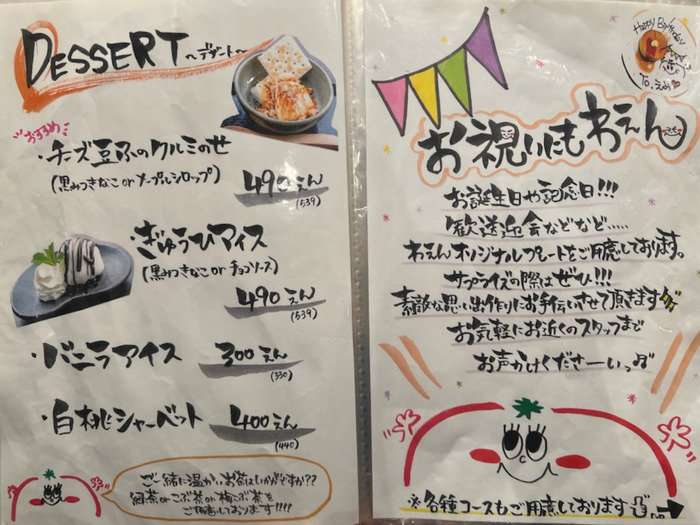 DESSERT ～デザート～
おすすめ
・チーズ豆ふのクルミのせ
(黒みつきなこ or メープルシロップ)
490えん
(539)
・ぎゅうひアイス
(黒みつきなこ or チョコソース)
490えん
(539)
・バニラアイス 300えん
(330)
・白桃シャーベット 400えん
(440)
ご一緒に温かいお茶はいかがですか??
緑茶 or こぶ茶 or 梅こぶ茶を
ご用意しております!!!!
Happy Birthday
To.えみ
お祝いにもわえん
お誕生日や記念日!!!
歓送迎会などなど.....
わえんオリジナルプレートをご用意しております。
サプライズの際はぜひ!!!
素敵な思い出作りにお手伝いさせて頂きます
お気軽にお近くのスタッフまで
お声かけくださーいっ♪
※各種コースもご用意しております